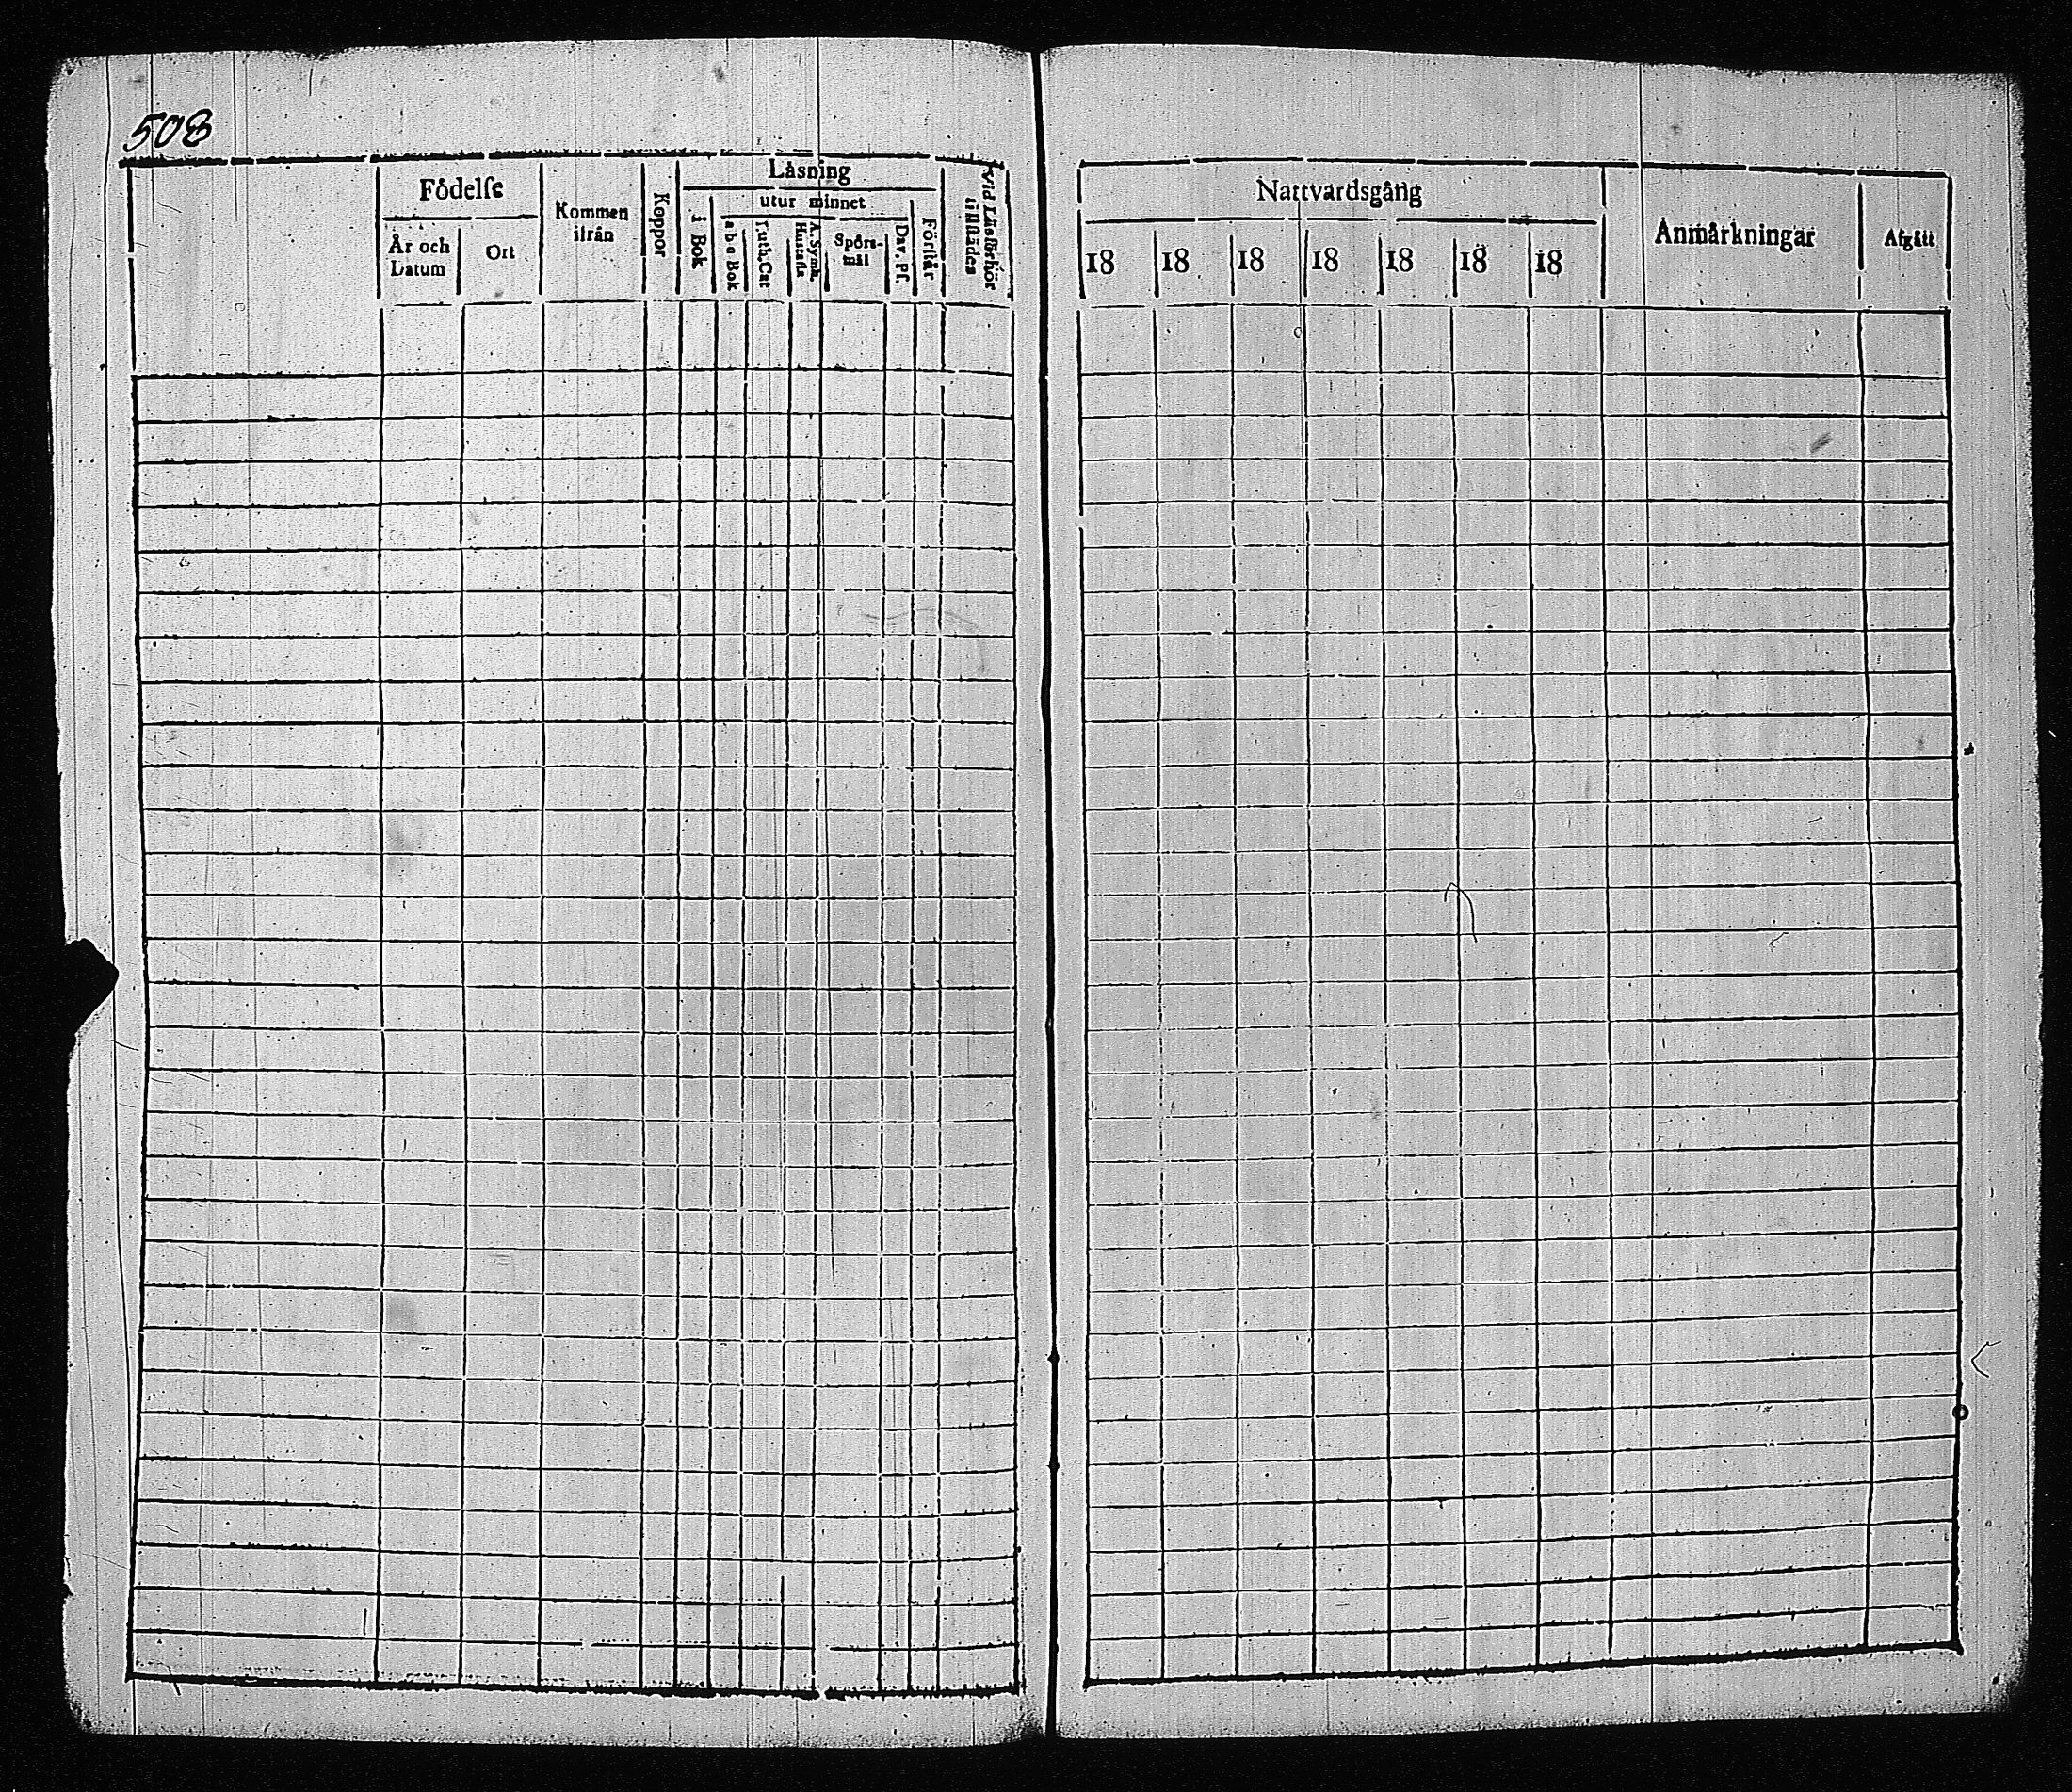 508
Födelſe
År och
Datum
Ort
Kommen
ifrån
Koppor
Läsning
i Bok
utur minnet
a b c Bok
Luth. Cat
A. Symb.
Hustafla
Spörs-
mål
Dav. Pſ.
Förſtår
Vid Läsförhör
tillſtädes
Nattvardsgång
18 18 18 18 18 18 18
Anmärkningar
Afgått